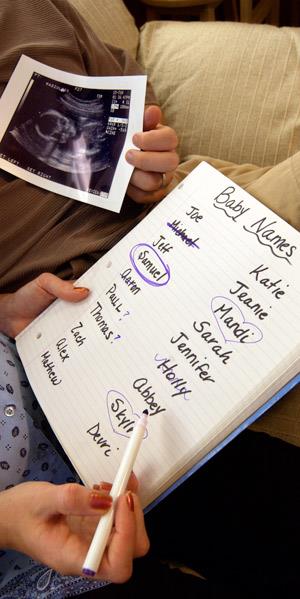 RADIOLOGY
Baby Names
Joe
Michael
Jeff
Samuel
Aaron
Paul?
Thomas?
Zach
Alex
Mathew
Katie
Jeanie
Mandi
Sarah
Jennifer
Holly
Abbey
Devri